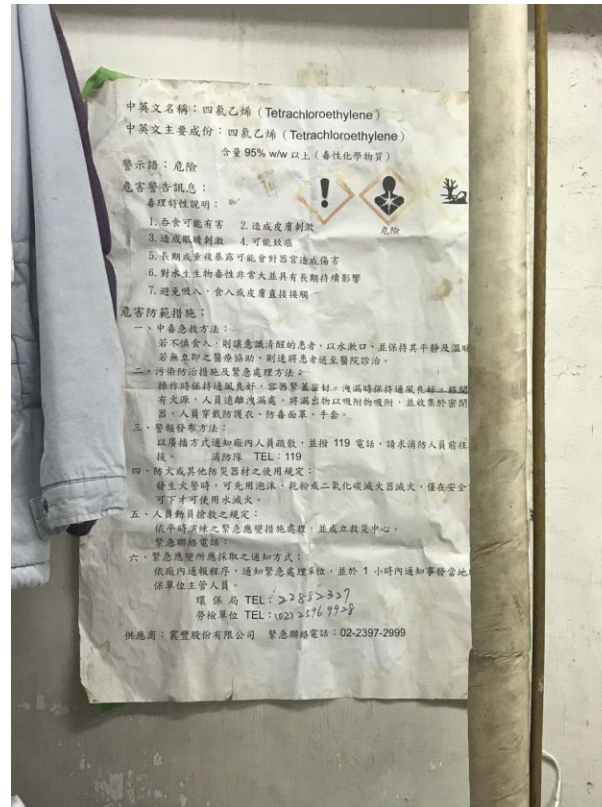 中英文名稱：四氯乙烯（Tetrachloroethylene）
中英文主要成份：四氯乙烯（Tetrachloroethylene）
含量 95% w/w 以上（毒性化學物質）
警示語：危險
危害警告訊息：
毒理特性說明：
1.吞食可能有害 2.造成皮膚刺激
3.造成眼睛刺激 4.可能致癌
危險
5.長期或重複暴露可能會對器官造成傷害
6.對水生生物毒性非常大並具有長期持續影響
7.避免吸入，食入或皮膚直接接觸
危害防範措施：
一、中毒急救方法：
若不慎食入，則讓意識清醒的患者，以水漱口，並保持其平靜及溫暖
若無立即之醫療協助，則速將患者送至醫院診治。
二、污染防治措施及緊急處理方法：
操作時保持通風良好，容器緊蓋密封。洩漏時保持通風良好，移開
有火源，人員遠離洩漏處。將漏出物以吸附物吸附，並收集於密閉
器，人員穿戴防護衣、防毒面罩、手套。
三、警報發布方法：
以廣播方式通知廠內人員疏散，並撥 119 電話，請求消防人員前往
援。 消防隊 TEL：119
四、防火或其他防災器材之使用規定：
發生火警時，可先用泡沫、乾粉或二氧化碳滅火器滅火，僅在安全
可下才可使用水滅火。
五、人員動員搶救之規定：
依平時演練之緊急應變措施處理，並成立救災中心。
緊急聯絡電話：
六、緊急應變所應採取之通知方式：
依廠內通報程序，通知緊急處理單位，並於 1 小時內通知事發當地
保單位主管人員。
環 保 局 TEL：22882327
勞檢單位 TEL：(02)25969928
供應商：寰豐股份有限公司 緊急聯絡電話：02-2397-2999